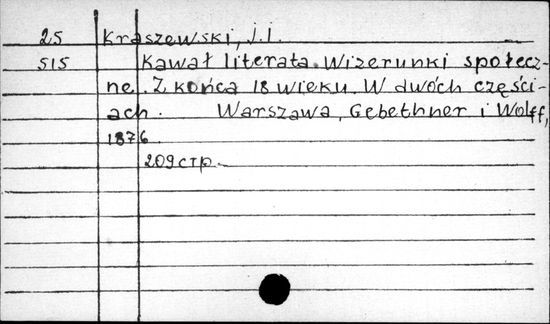 25 Kraszewski, J.I.
515 Kawał literata. Wizerunki społecz-
ne. Z końca 18 wieku. W dwóch części-
ach. Warszawa, Gebethner i Wolff,
1876.
209 стр.